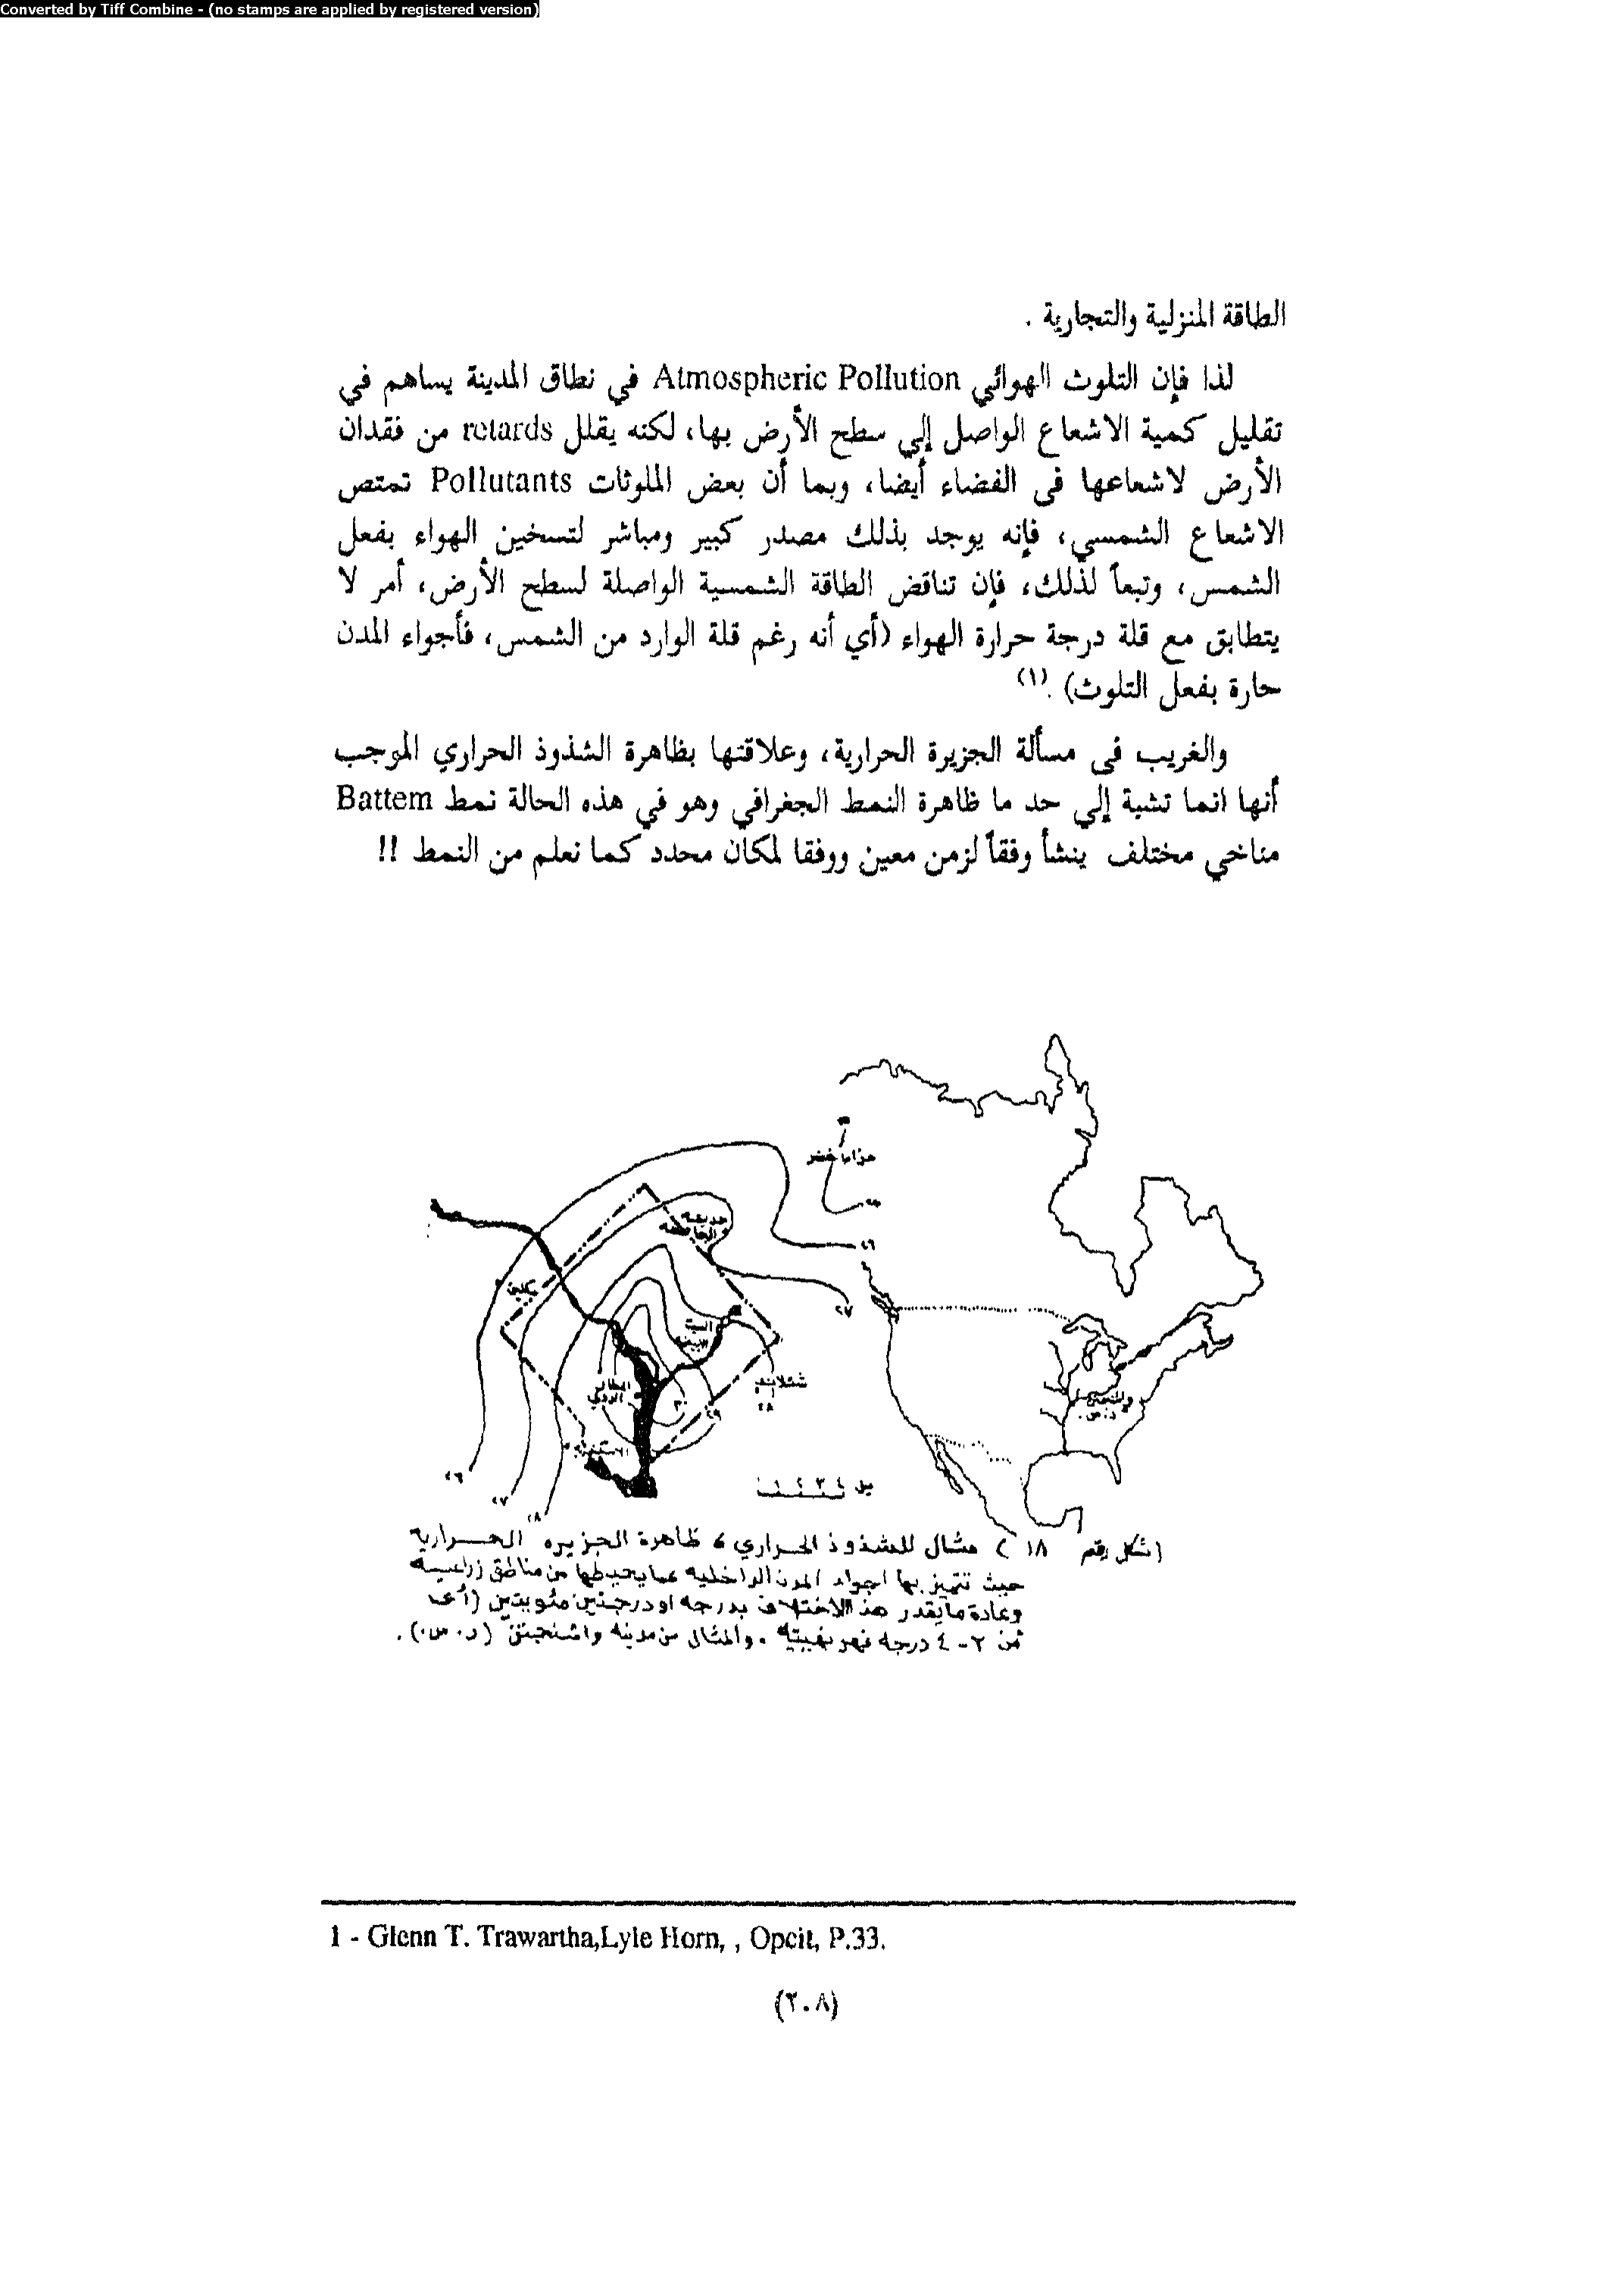 Converted by Tiff Combine - (no stamps are applied by registered version)
الطاقة المنزلية والتجارية .
لذا فإن التلوث الهوائي Atmospheric Pollution في نطاق المدينة يساهم في
تقليل كمية الاشعاع الواصل إلي سطح الأرض بها، لكنه يقلل retards من فقدان
الأرض لاشعاعها فى الفضاء أيضا، وبما أن بعض الملوثات Pollutants تمتص
الاشعاع الشمسي، فإنه يوجد بذلك مصدر كبير ومباشر لتسخين الهواء بفعل
الشمس، وتبعاً لذلك، فإن تناقض الطاقة الشمسية الواصلة لسطح الأرض، أمر لا
يتطابق مع قلة درجة حرارة الهواء (أي أنه رغم قلة الوارد من الشمس، فأجواء المدن
حارة بفعل التلوث) .(١)
والغريب فى مسألة الجزيرة الحرارية، وعلاقتها بظاهرة الشذوذ الحراري الموجب
أنها انما تشبة إلي حد ما ظاهرة النمط الجغرافي وهو في هذه الحالة نمط Battem
مناخي مختلف ينشأ وفقاً لزمن معين ووفقا لمكان محدد كما نعلم من النمط !!
٢٦
٢٧
٢٨
٢٩
٣٠
ميل
(شكل رقم ١٨ ) مثال للشذوذ الحراري ، ظاهرة الجزيره الحرارية
حيث تتميز بها اجواء المدن الداخليه عما يحيطها من مناطق زراعيه
وعادة مايقدر هذا الاختلاف بدرجه او درجتين مئويتين (أى
من ٢ - ٤ درجه فهرنهيتيه . والمثال من مدينه واشنجتن (د.س.) .
1 - Glenn T. Trawartha,Lyle Horn, , Opcit, P.33.
(٢٠٨)